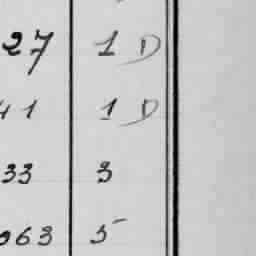 27 1 D
41 1 D
33 3
963 5